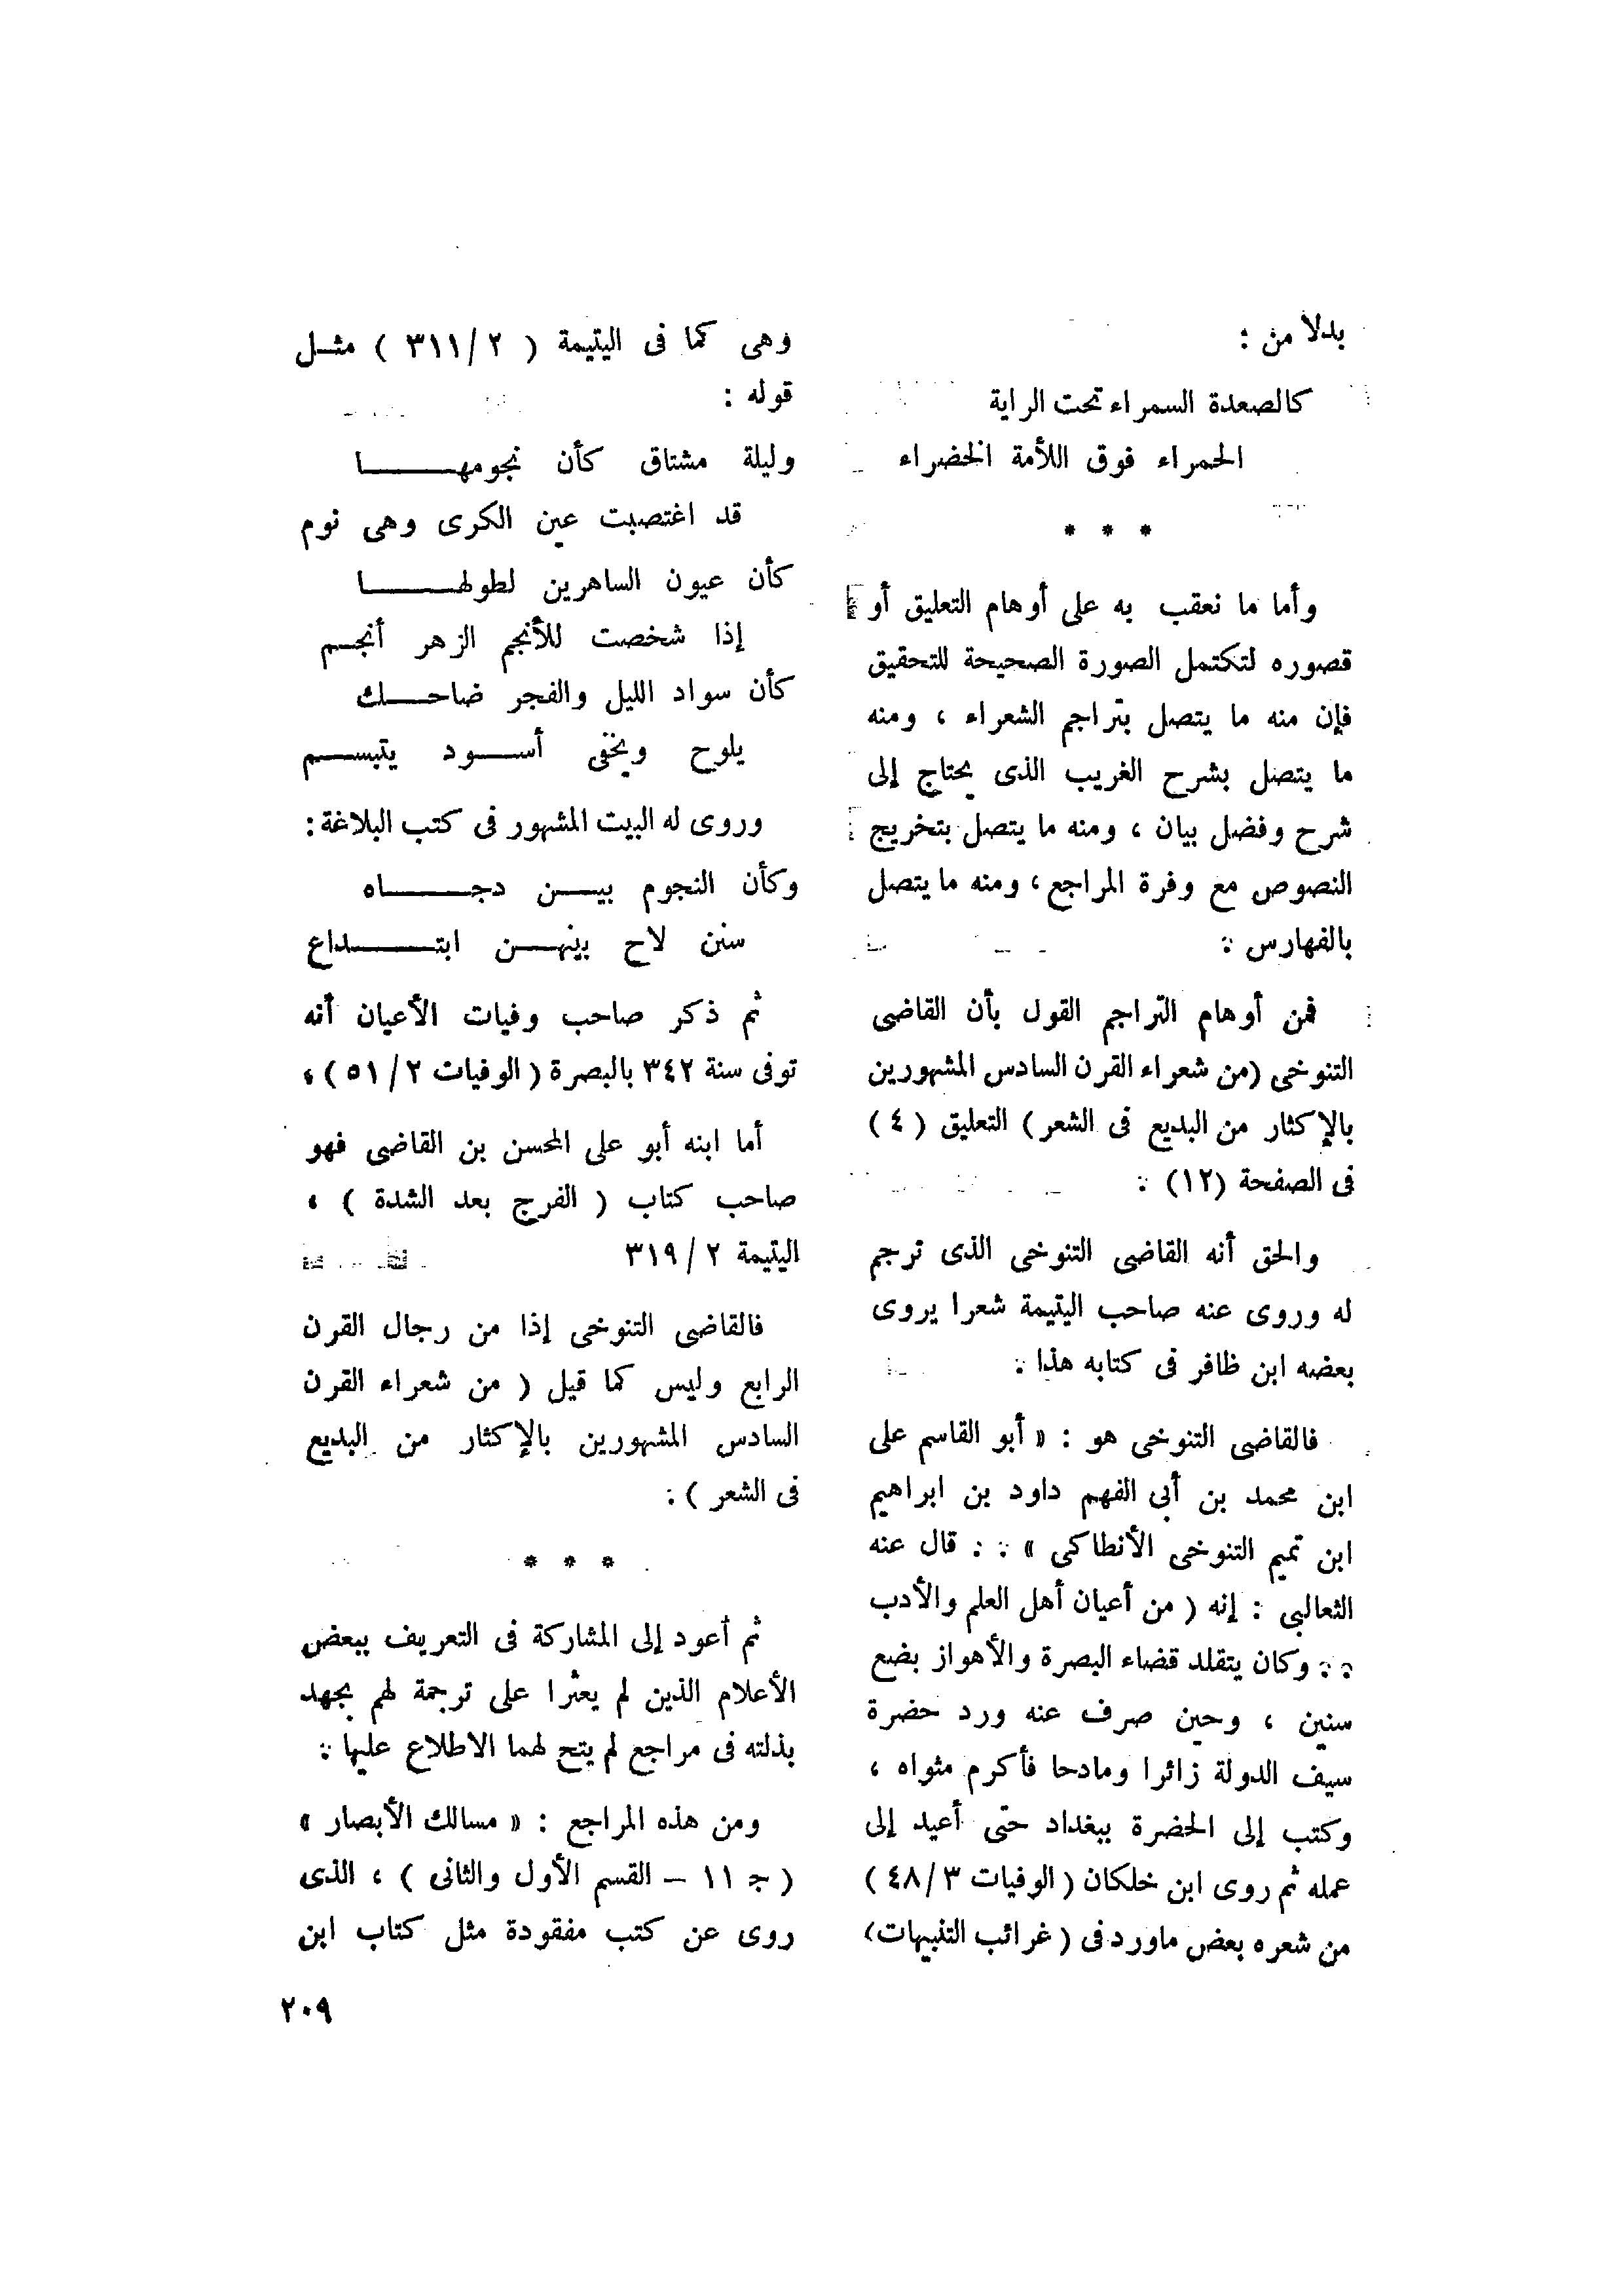 بدلا من :
كالصعدة السمراء تحت الراية
الحمراء فوق اللأمة الخضراء
* * *
وأما ما نعقب به على أوهام التعليق أو
قصوره لتكتمل الصورة الصحيحة للتحقيق
فإن منه ما يتصل بتراجم الشعراء ، ومنه
ما يتصل بشرح الغريب الذى يحتاج إلى
شرح وفضل بيان ، ومنه ما يتصل بتخريج
النصوص مع وفرة المراجع ، ومنه ما يتصل
بالفهارس :
فمن أوهام التراجم القول بأن القاضى
التنوخى (من شعراء القرن السادس المشهورين
بالإكثار من البديع فى الشعر) التعليق (٤)
فى الصفحة (١٢) :
والحق أنه القاضى التنوخى الذى ترجم
له وروى عنه صاحب اليتيمة شعرا يروى
بعضه ابن ظافر فى كتابه هذا :
فالقاضى التنوخى هو : « أبو القاسم على
ابن محمد بن أبى الفهم داود بن ابراهيم
ابن تميم التنوخى الأنطاكى » : : قال عنه
الثعالبى : إنه ( من أعيان أهل العلم والأدب
: : وكان يتقلد قضاء البصرة والأهواز بضع
سنين ، وحين صرف عنه ورد حضرة
سيف الدولة زائرا ومادحا فأكرم مثواه ،
وكتب إلى الحضرة ببغداد حتى أعيد إلى
عمله ثم روى ابن خلكان ( الوفيات ٤٨/٣ )
من شعره بعض ماورد فى ( غرائب التنبيهات)
وهى كما فى اليتيمة ( ٣١١/٢ ) مثـل
قوله :
وليلة مشتاق كأن نجومهـــا
قد اغتصبت عين الكرى وهى نوم
كأن عيون الساهرين لطولهـــا
إذا شخصت للأنجم الزهر أنجـم
كأن سواد الليل والفجر ضاحـك
يلوح ويخفى أسـود يتبسـم
وروى له البيت المشهور فى كتب البلاغة :
وكأن النجوم بيـن دجـــاه
سنن لاح بينهـن ابتـــداع
ثم ذكر صاحب وفيات الأعيان أنه
توفى سنة ٣٤٢ بالبصرة ( الوفيات ٥١/٢ ) ،
أما ابنه أبو على المحسن بن القاضى فهو
صاحب كتاب ( الفرج بعد الشدة ) ،
اليتيمة ٣١٩/٢
فالقاضى التنوخى إذا من رجال القرن
الرابع وليس كما قيل ( من شعراء القرن
السادس المشهورين بالإكثار من البديع
فى الشعر ) :
* * *
ثم أعود إلى المشاركة فى التعريف ببعض
الأعلام الذين لم يعثرا على ترجمة لهم بجهد
بذلته فى مراجع لم يتح لهما الاطلاع عليها :
ومن هذه المراجع : « مسالك الأبصار »
( جـ ١١ – القسم الأول والثانى ) ، الذى
روى عن كتب مفقودة مثل كتاب ابن
٢٠٩